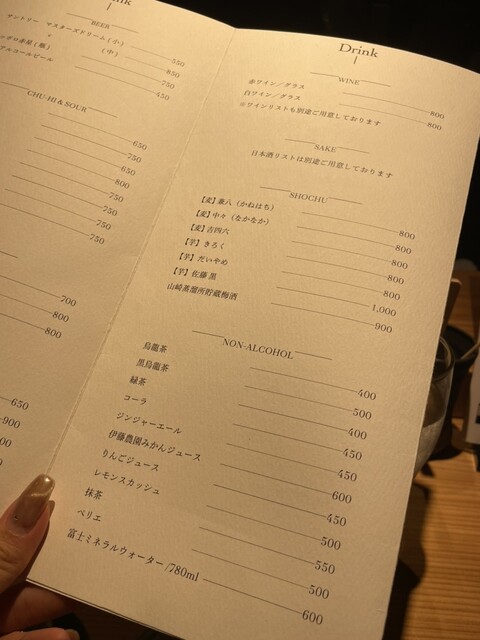 BEER
サントリー マスターズドリーム(小)
550
〃 (中)
850
750
アルコールビール
450
CHU-HI & SOUR
650
750
650
800
750
750
750
750
700
800
800
650
900
Drink
WINE
赤ワイン／グラス 800
白ワイン／グラス 800
※ワインリストも別途ご用意しております
SAKE
日本酒リストは別途ご用意しております
SHOCHU
【麦】兼八（かねはち） 800
【麦】中々（なかなか） 800
【麦】吉四六 800
【芋】きろく 800
【芋】だいやめ 800
【芋】佐藤 黒 1,000
山崎蒸溜所貯蔵梅酒 900
NON-ALCOHOL
烏龍茶 400
黒烏龍茶 500
緑茶 400
コーラ 450
ジンジャーエール 450
伊藤農園みかんジュース 600
りんごジュース 450
レモンスカッシュ 500
抹茶 550
ペリエ 500
富士ミネラルウォーター /780ml 600